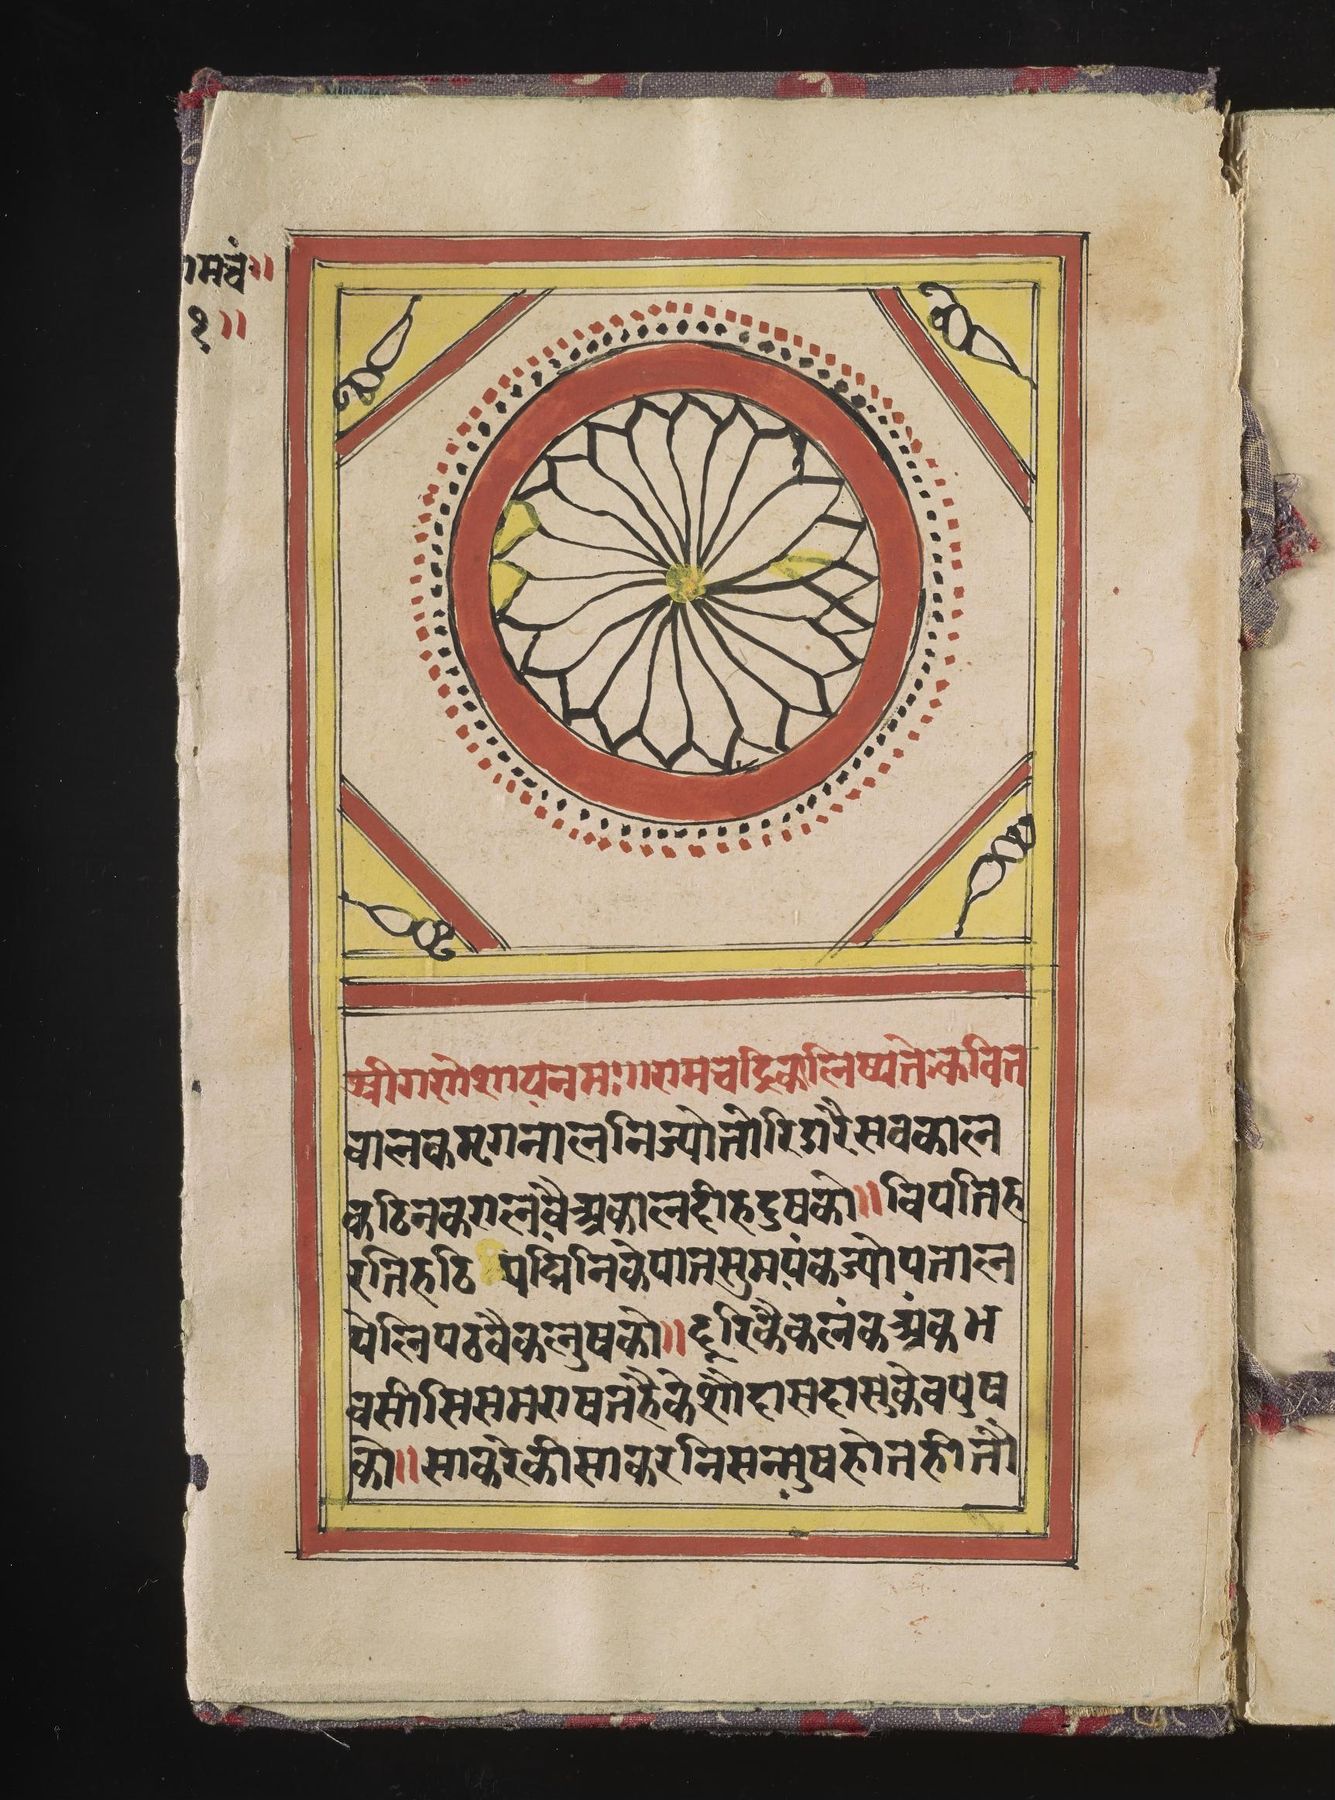 रामचं॥
१॥
श्रीगणेशायनमः॥रामचद्रिकालिष्यतेकवित
बालकमृणालनिज्योंतोरिडारैसबकाल
कठिनकरालवैअकालदीहदुषको॥विपतिह
रतिहठि पद्मिनिकेपातसुमपंकज्योंपताल
पेलिपठवैकलुषको॥दूरिकैकलंकअंकभ
वसीसिसमराषतहैकेशौदासदासुकेवपुष
कों॥साकरेकीसाकरनिसन्मुषहोतहीतौ